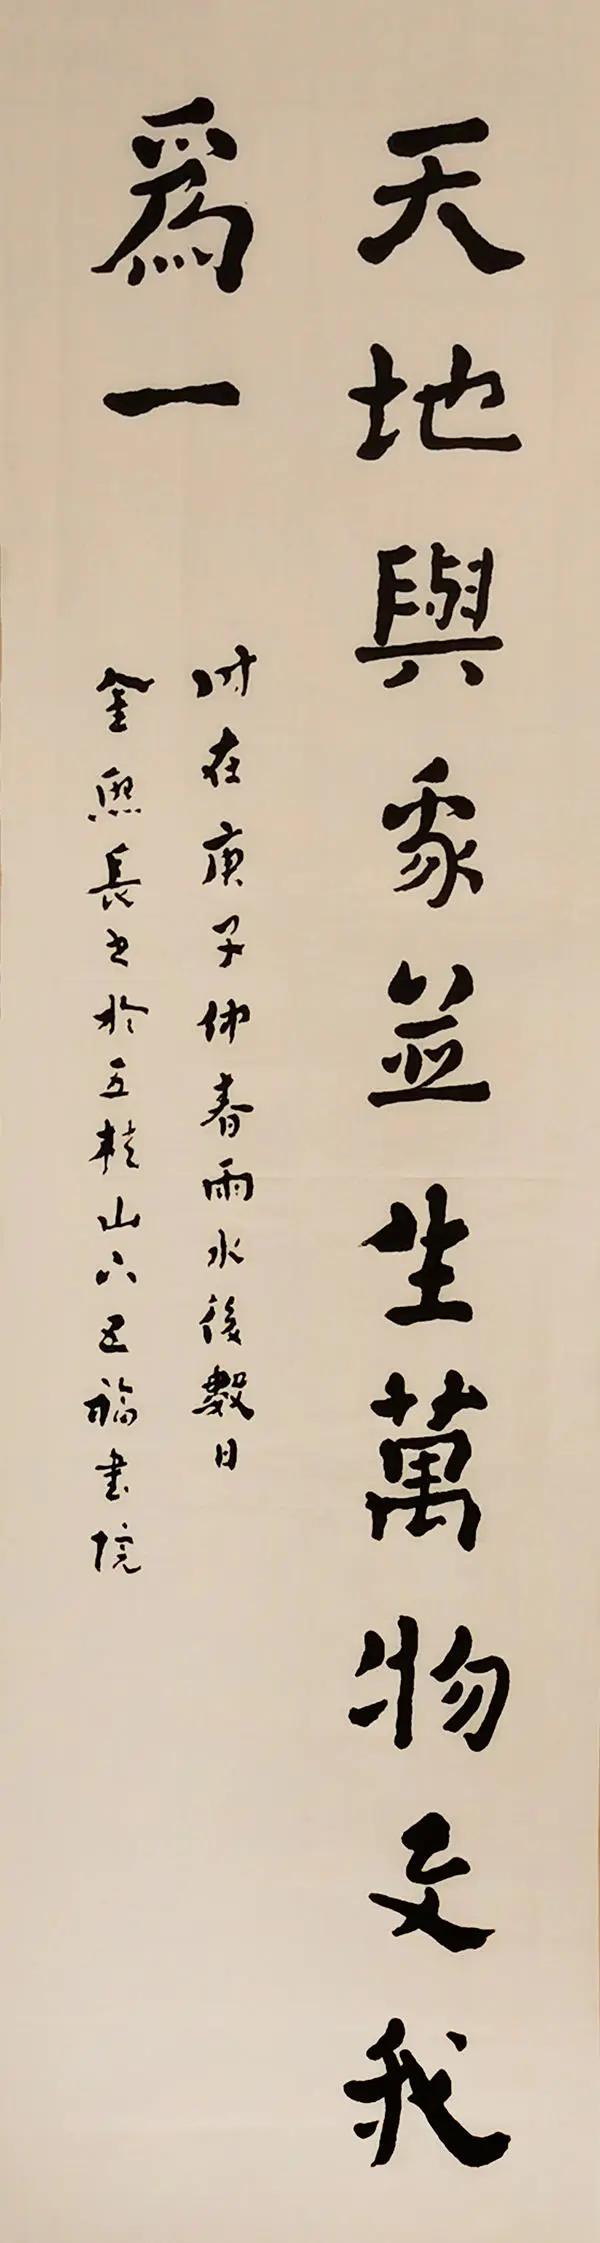 天地與並生萬物我
爲一
时在庚子仲春雨水後數日
金熙長书於五桂山下五福書院